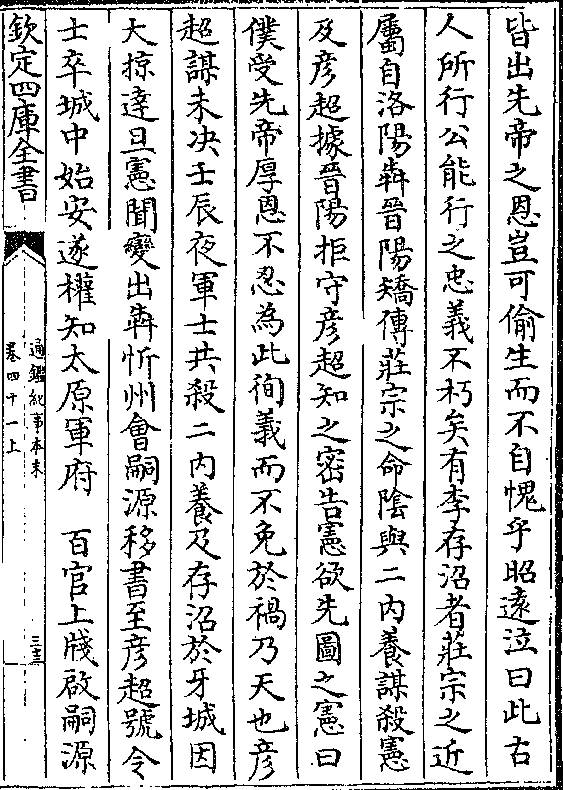 皆出先帝之恩豈可偷生而不自愧乎昭遠泣曰此古
人所行公能行之忠義不朽矣有李存沼者莊宗之近
屬自洛陽犇晉陽矯傳莊宗之命陰與二内養謀殺憲
及彦超據晉陽拒守彦超知之密告憲欲先圖之憲曰
僕受先帝厚恩不忍為此徇義而不免於禍乃天也彦
超謀未决壬辰夜軍士共殺二内養及存沼於牙城因
大掠達旦憲聞變出犇忻州會嗣源移書至彦超號令
士卒城中始安遂權知太原軍府　百官上牋啟嗣源
欽定四庫全書
通鑑紀事本末
卷四十一上
三十三